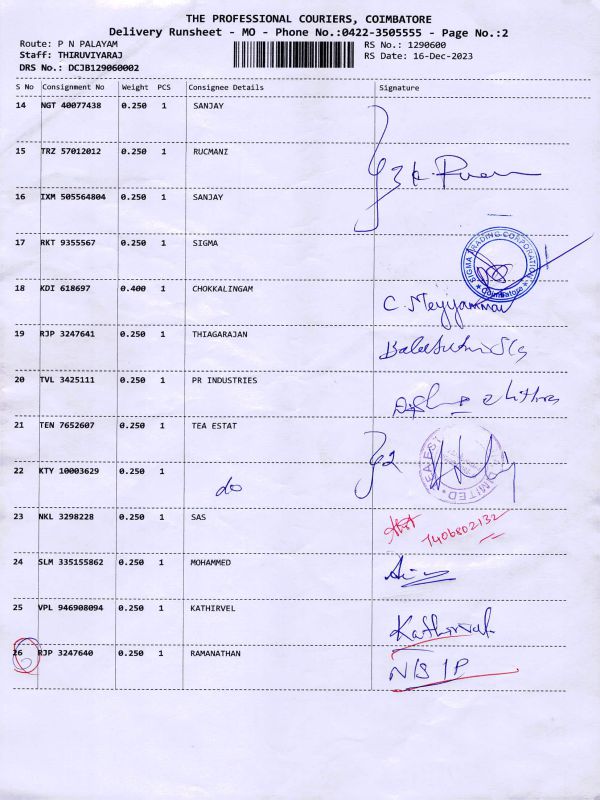 THE PROFESSIONAL COURIERS, COIMBATORE
Delivery Runsheet - MO - Phone No.:0422-3505555 - Page No.:2
Route: P N PALAYAM RS No.: 1290600
Staff: THIRUVIYARAJ RS Date: 16-Dec-2023
DRS No.: DCJB129060002
S No Consignment No Weight PCS Consignee Details Signature
14 NGT 40077438 0.250 1 SANJAY
15 TRZ 57012012 0.250 1 RUCMANI
16 IXM 505564804 0.250 1 SANJAY
17 RKT 9355567 0.250 1 SIGMA
SIGMA TRADING CORPORATION
★ Coimbatore ★
18 KDI 618697 0.400 1 CHOKKALINGAM C. Meyyammai
19 RJP 3247641 0.250 1 THIAGARAJAN
20 TVL 3425111 0.250 1 PR INDUSTRIES
21 TEN 7652607 0.250 1 TEA ESTAT
LIMITED
22 KTY 10003629 0.250 1 do
23 NKL 3298228 0.250 1 SAS 7406802132
24 SLM 335155862 0.250 1 MOHAMMED
25 VPL 946908094 0.250 1 KATHIRVEL Kathirvel
26 RJP 3247640 0.250 1 RAMANATHAN